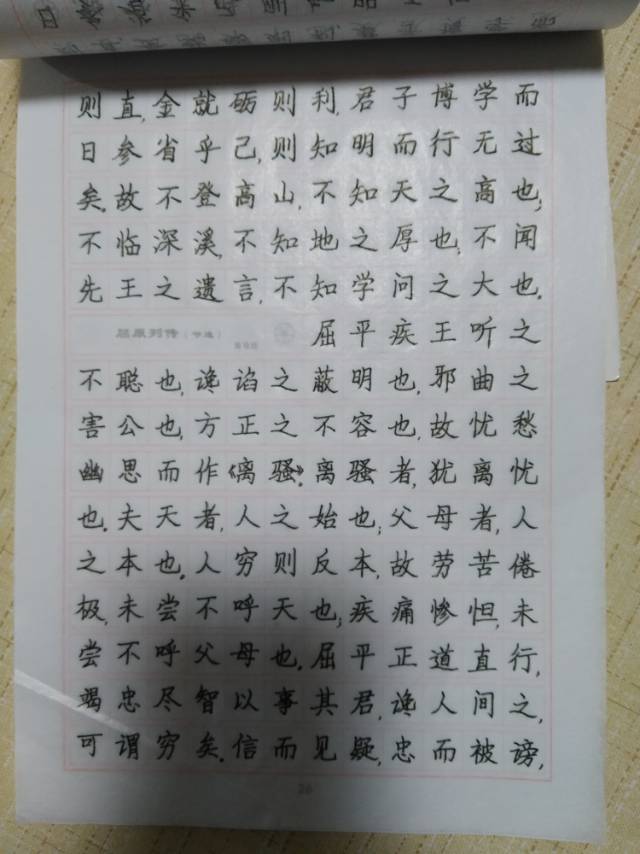 则直,金就砺则利,君子博学而
日参省乎己,则知明而行无过
矣.故不登高山,不知天之高也;
不临深溪,不知地之厚也;不闻
先王之遗言,不知学问之大也.
屈原列传(节选)
屈平疾王听之
不聪也,谗谄之蔽明也,邪曲之
害公也,方正之不容也,故忧愁
幽思而作《离骚》.离骚者,犹离忧
也.夫天者,人之始也;父母者,人
之本也.人穷则反本,故劳苦倦
极,未尝不呼天也;疾痛惨怛,未
尝不呼父母也.屈平正道直行,
竭忠尽智以事其君,谗人间之,
可谓穷矣.信而见疑,忠而被谤,
26